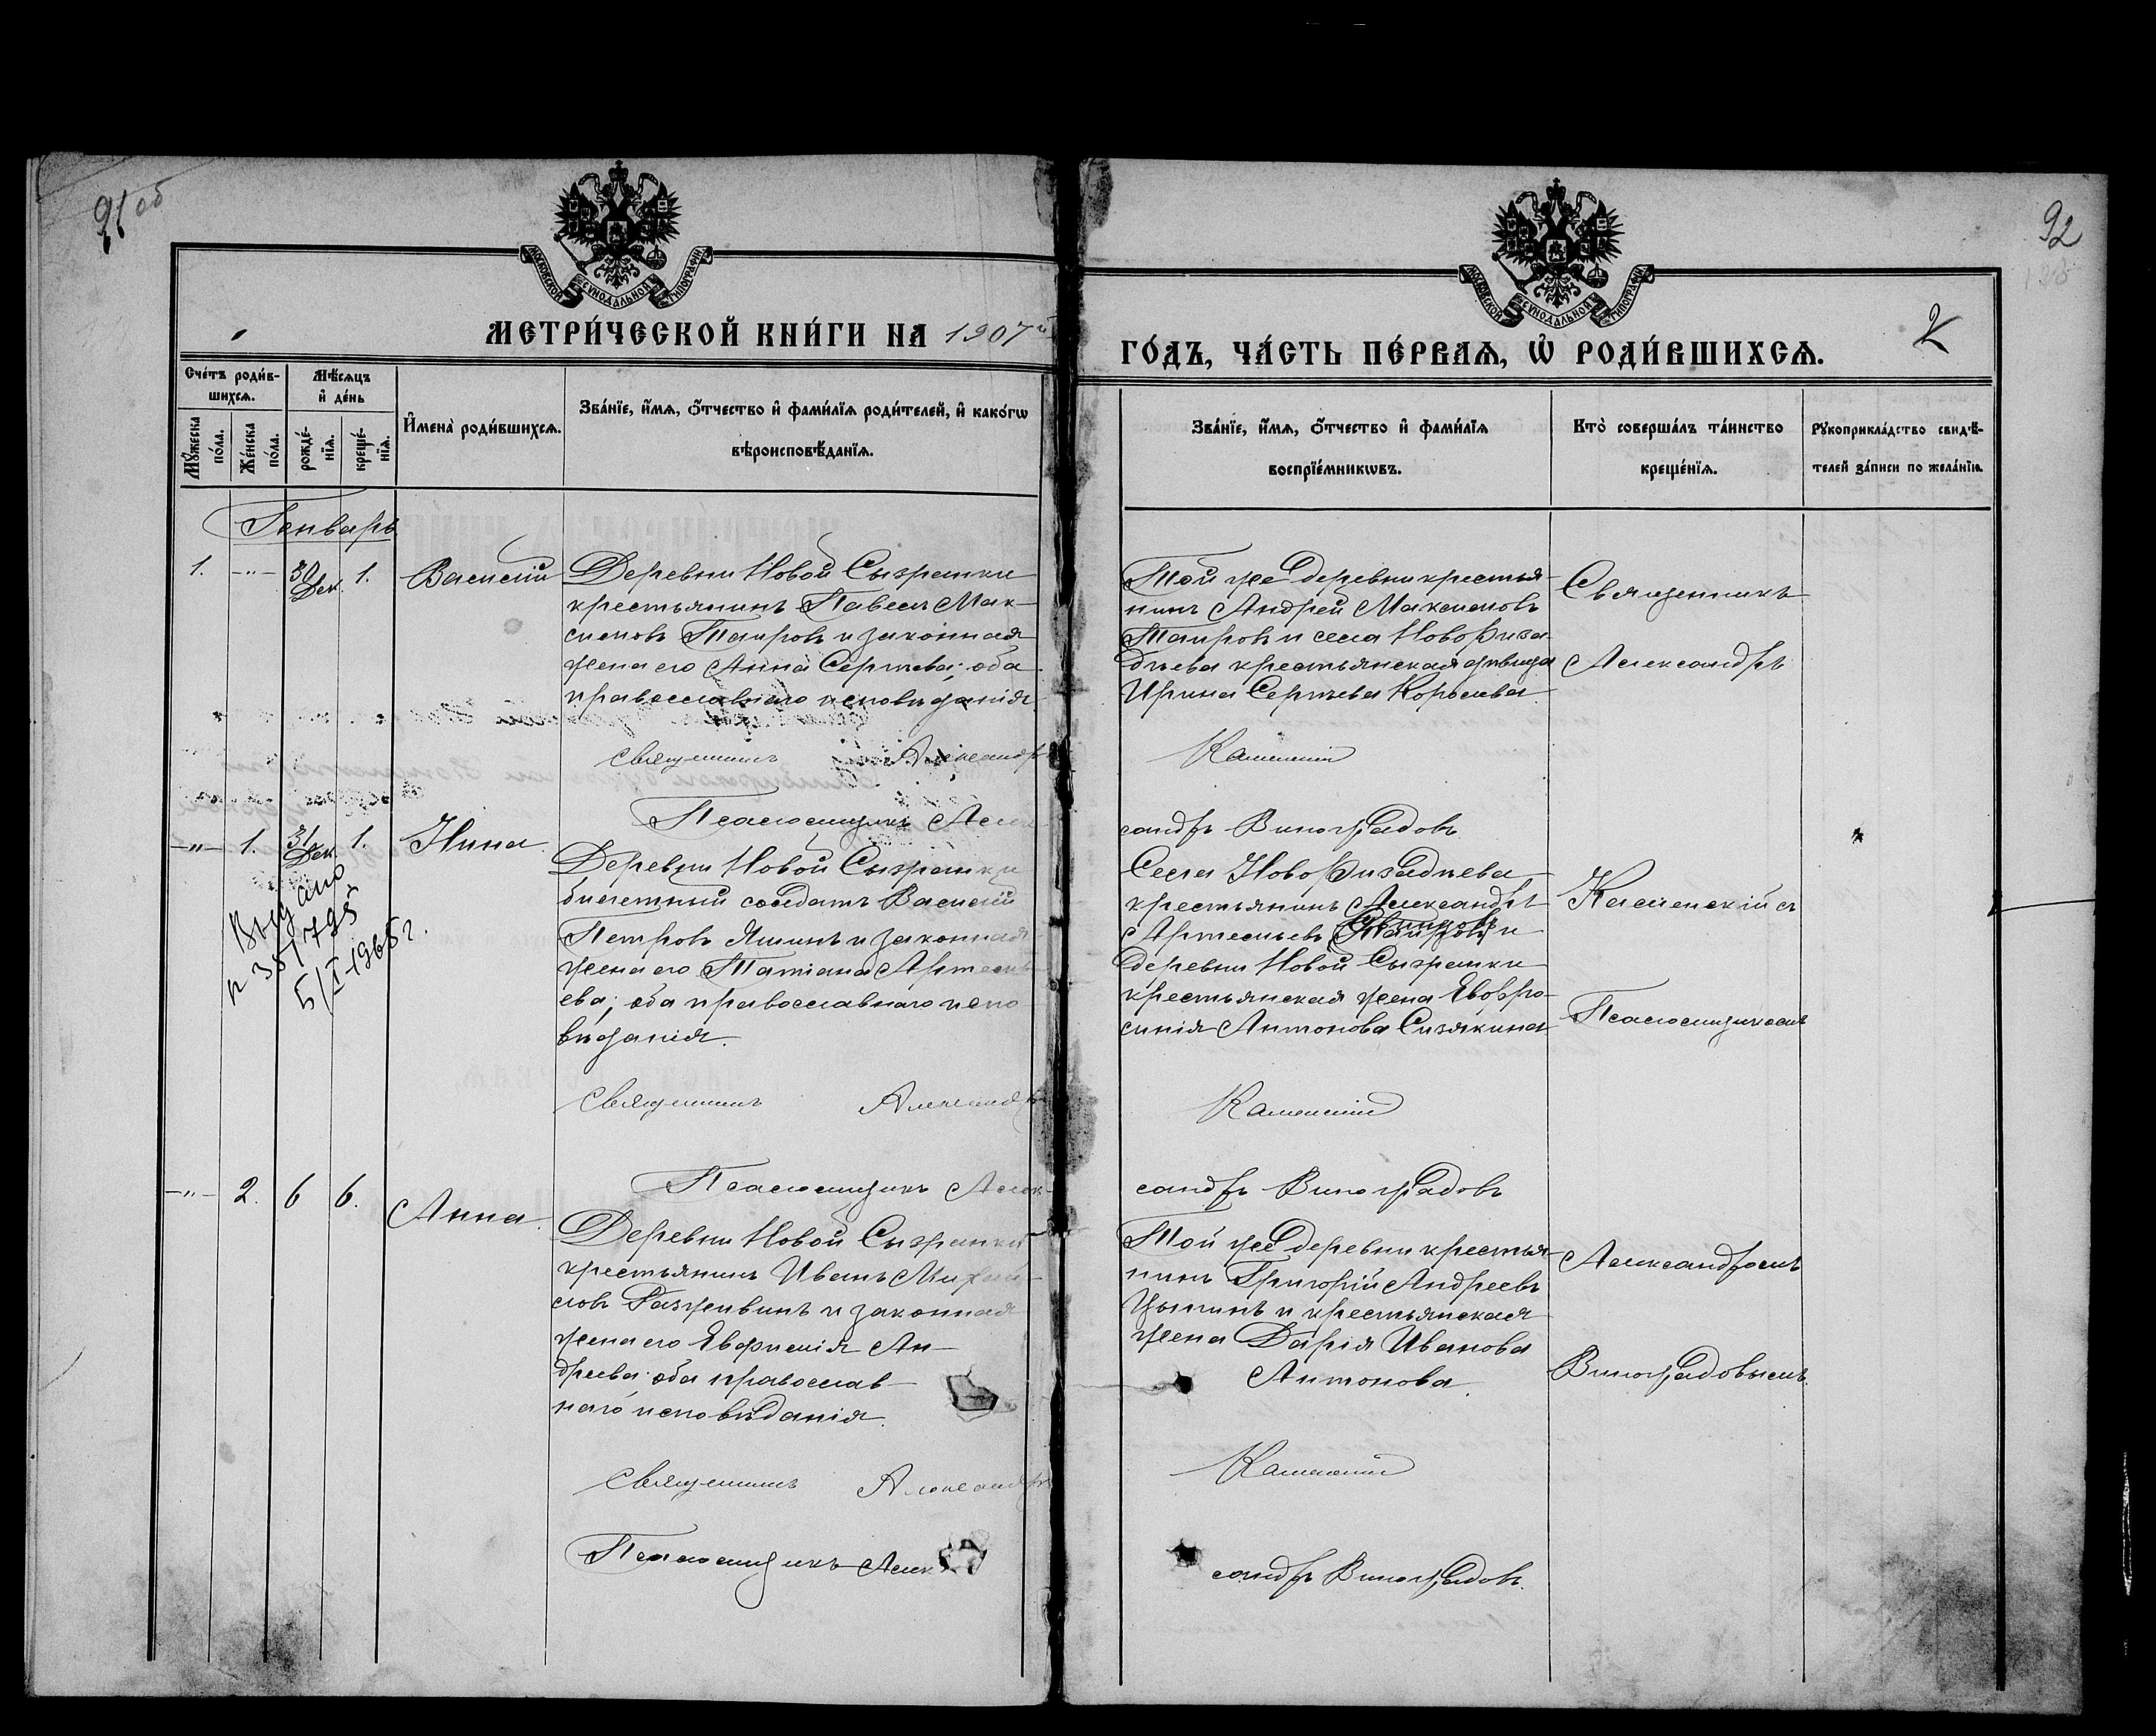 91 об
92
МОСКОВСКОЙ СѴНОДАЛЬНОЙ ТИПОГРАФІИ
МОСКОВСКОЙ СѴНОДАЛЬНОЙ ТИПОГРАФІИ
МЕТРИ́ЧЕСКОЙ КНИ́ГИ НА 1907й
ГО́ДЪ, ЧА́СТЬ ПЕ́РВАѦ, Ѡ҆ РОДИ́ВШИХСѦ.
2
Сче́тъ роди́в-
шихсѧ.
Мѣ́сѧцъ
и҆ де́нь
Мꙋ́жеска
по́ла.
Же́нска
по́ла.
рожде́-
нїѧ.
креще́-
нїѧ.
И҆мена̀ роди́вшихсѧ.
Зва́нїе, и҆́мѧ, ѻ҆́тчество и҆ фами́лїѧ роди́телей, и҆ како́гѡ
вѣроисповѣ́данїѧ.
Зва́нїе, и҆́мѧ, ѻ҆́тчество и҆ фами́лїѧ
воспрїе́мникѡвъ.
Кто̀ соверша́лъ та́инство
креще́нїѧ.
Рꙋкоприкла́дство свидѣ́-
телей за́писи по жела́нїю.
Генварь
1. -"- 30 Дек. 1. Василій
Деревни Новой Сызранки
крестьянинъ Павелъ Мак-
симовъ Таировъ и законная
жена его Анна Сергѣева; оба
православнаго исповѣданія.
Священникъ Александръ
Псаломщикъ Алек
Той же деревни крестья-
нинъ Андрей Максимовъ
Таировъ и села Новофиза-
дѣева крестьянская дѣвица
Ирина Сергѣева Королева
Каменскій
сандръ Виноградовъ
Священникъ
Александръ
-"- 1. 31 Дек. 1. Нина.
Выдано
5/I-1965г.
Деревни Новой Сызранки
билетный солдатъ Василій
Петровъ Яшинъ и законная
жена его Татіана Артемь
ева; оба православнаго испо
вѣданія.
Священникъ Александръ
Псаломщикъ Алек-
Села Новофизадѣева
крестьянинъ Александръ
Артемьевъ Таировъ и
деревни Новой Сызранки
крестьянская жена Евфро-
синія Антонова Сизякина
Каменскій
сандръ Виноградовъ
Каменскій съ
Псаломщикомъ
-"- 2. 6 6. Анна.
Деревни Новой Сызранки
крестьянинъ Иванъ Михай-
ловъ Разживинъ и законная
жена его Евфимія Ан-
дреева; оба православ-
наго исповѣданія.
Священникъ Александръ
Псаломщикъ Алек
Той же деревни крестья-
нинъ Григорій Андреевъ
и крестьянская
жена Дарія Иванова
Антонова.
Каменскій
сандръ Виноградовъ.
Александромъ
Виноградовымъ.